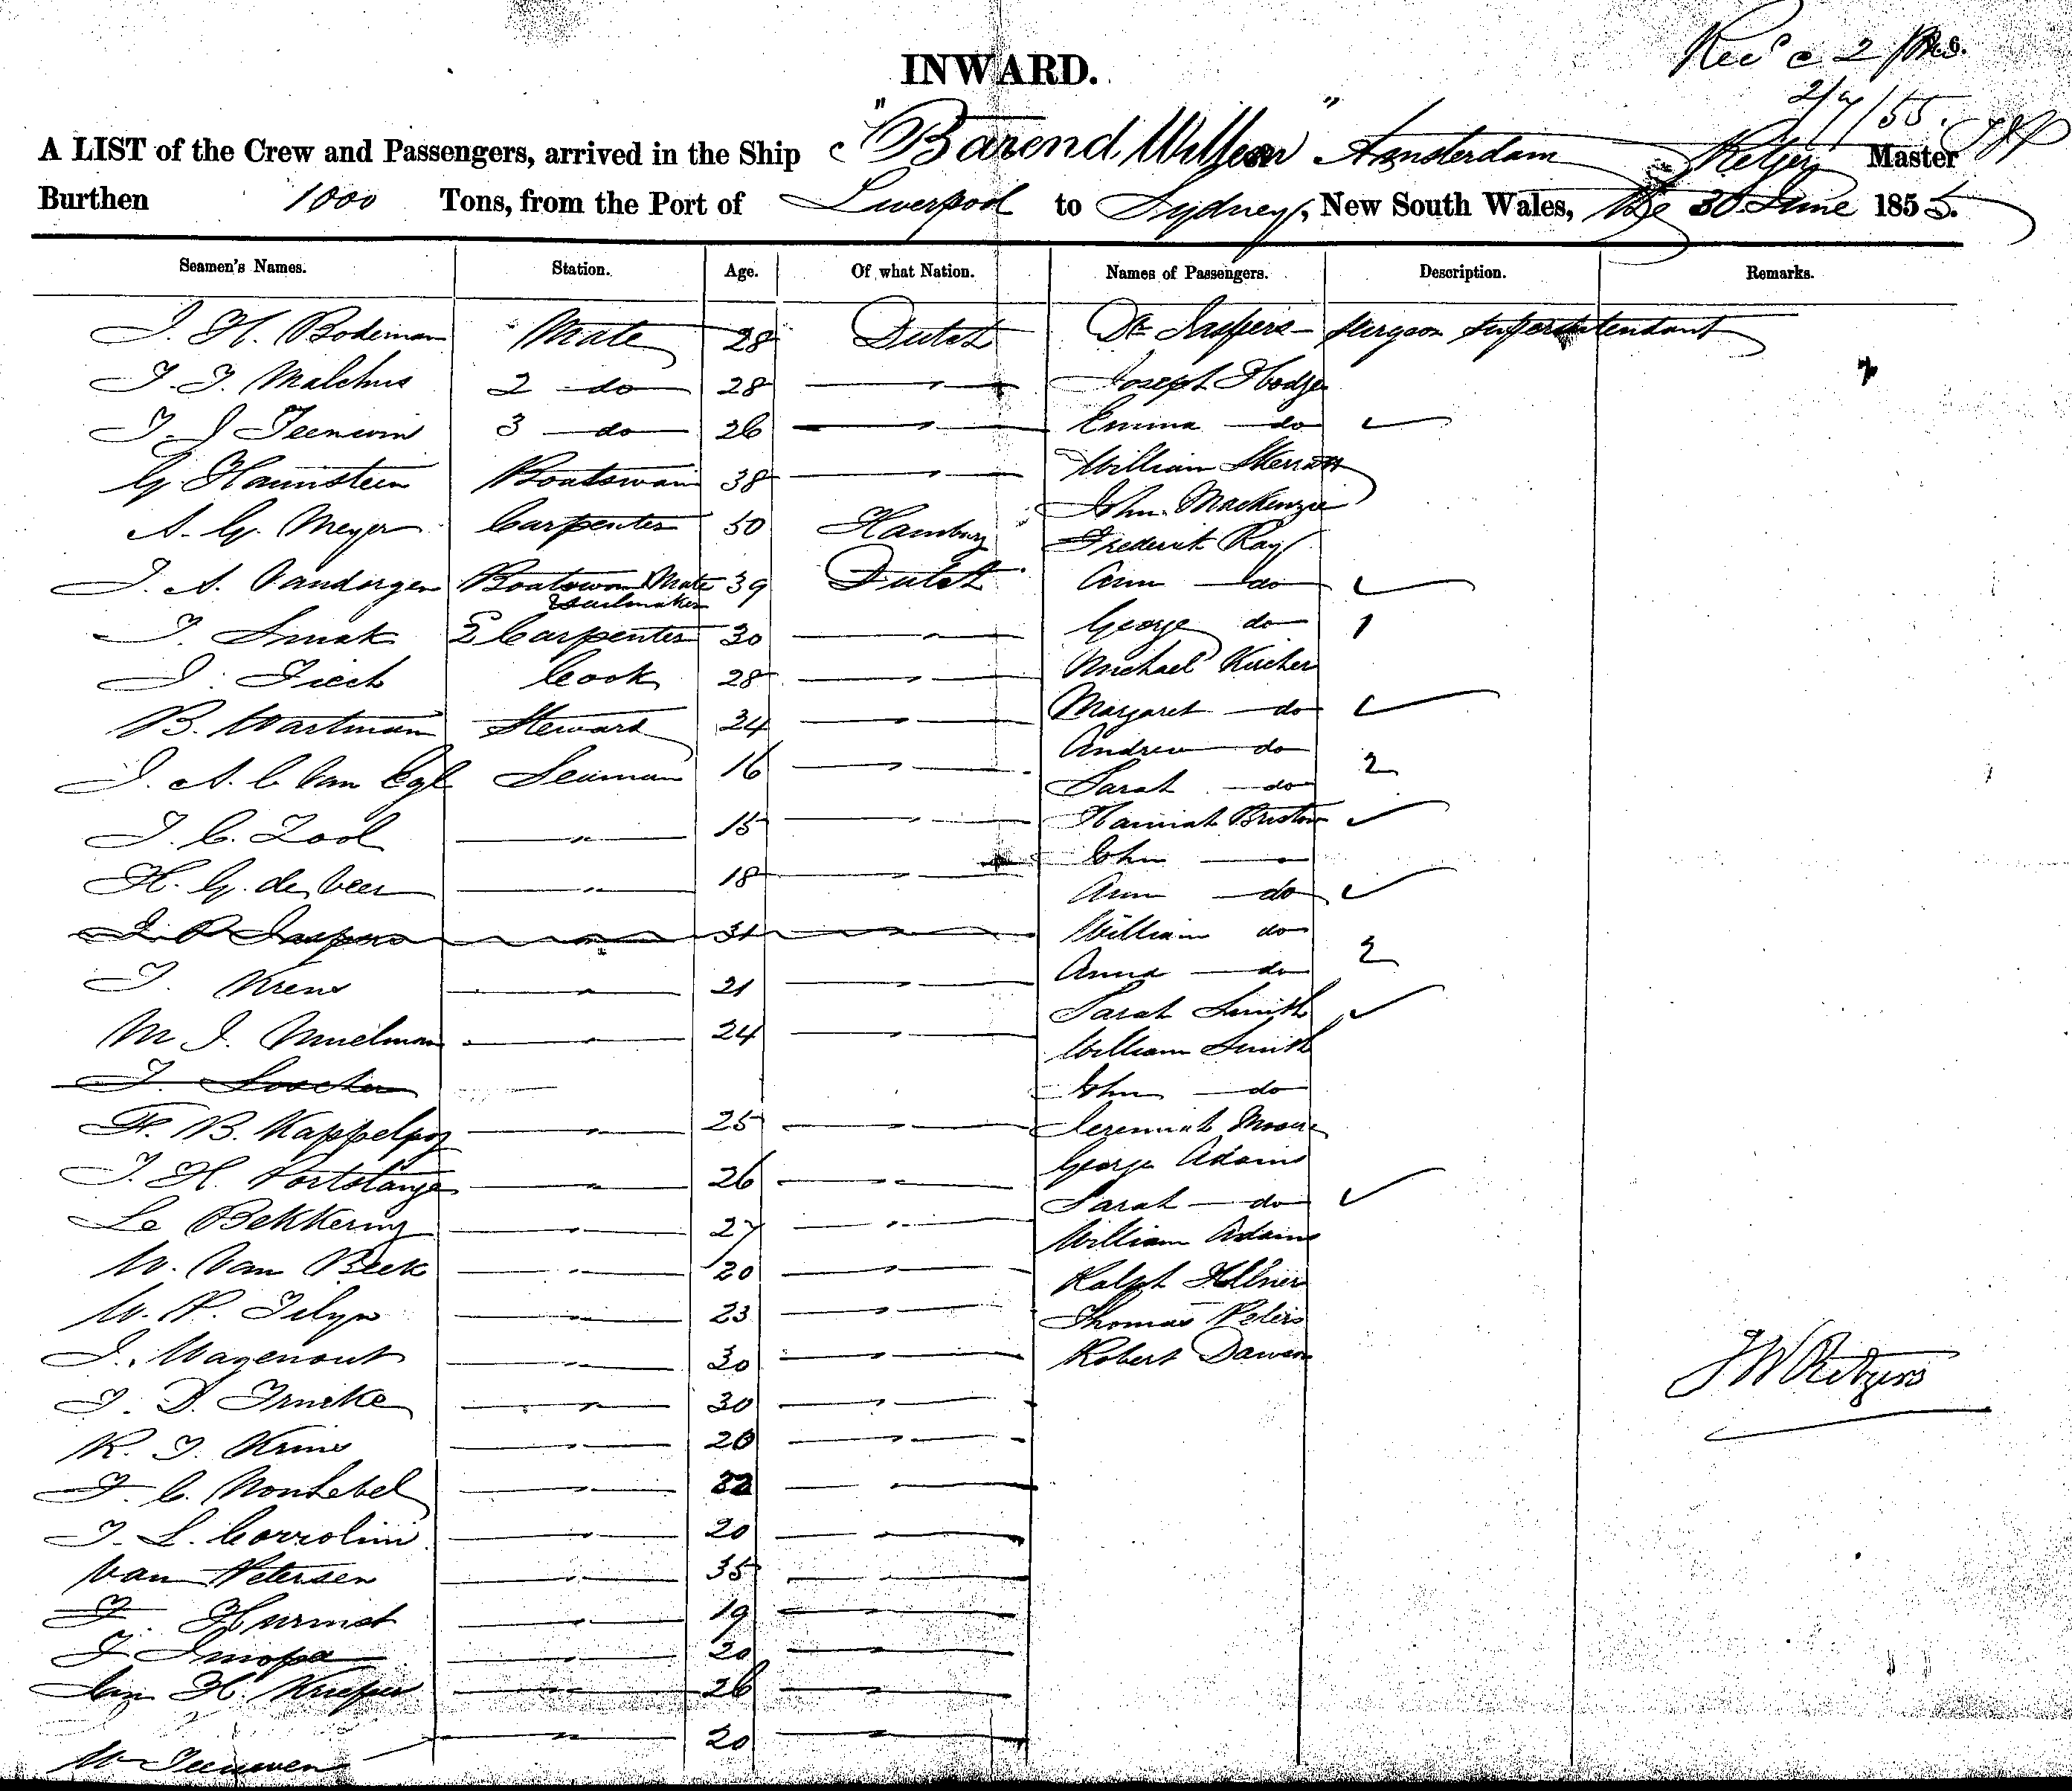 INWARD.
Recd 2 PM 6.
2/7/55.
A LIST of the Crew and Passengers, arrived in the Ship "Barend Willem" Amsterdam Retgers Master
Burthen 1000 Tons, from the Port of Liverpool to Sydney, New South Wales, the 30 June 1855.
Seamen's Names. Station. Age. Of what Nation. Names of Passengers. Description. Remarks.
J. H. Bodeman Mate 28 Dutch Dr Jaspers - Surgeon Superintendant
J. J. Malchus 2 do 28 — " — Joseph Hodge
J. J 3 do 26 — " — Emma do ✓
G. Haunstein Boatswain 38 — " — William Skerratt
John Mackenzie
A. G. Meyer Carpenter 50 Hamburg Frederick Ray
J. A. Vandorgen Boatswan Mate & Sailmaker 39 Dutch Ann do ✓
J. Smak 2 Carpenter 30 — " — George do 1
J. Fiech Cook 28 — " — Michael Kircher
B. Wartman Steward 34 — " — Margaret do ✓
Andrew do
J. A. C. Van Egl Seaman 16 — " — 2
Sarah do
J. C. Zool — " — 15 — " — Hannah Bristow ✓
John —
H. G. de Veer — " — 18 — " — Ann do ✓
J. P. Jaspers — " — 31 — " — William do
Anna do 2
J. Krens — " — 21 — " — Sarah Smith ✓
M J. Muelman — " — 24 — " — William Smith
J. John do
F. B. Kappelhoy — " — 25 — " — Jeremiah Moore
George Adams
J. H. Portstange — " — 26 — " — Sarah do ✓
Le Bekkering — " — 27 — " — William Adams
W. Van Beek — " — 20 — " — Ralph
W. P. Tilyn — " — 23 — " — Thomas Peters
J. Wagenout — " — 30 — " — Robert Dawson
J W Retgers
J. D. — " — 30 — " —
K. J. Krins — " — 20 — " —
J. C. Nonhebel — " — 32 — " —
J. L. Corrolini — " — 20 — " —
Van Petersen — " — 35 — " —
J. Hurmet — " — 19 — " —
J — " — 20 — " —
Jan H. Kuiper — " — 26 — " —
W Teeuwen — " — 20 — " —